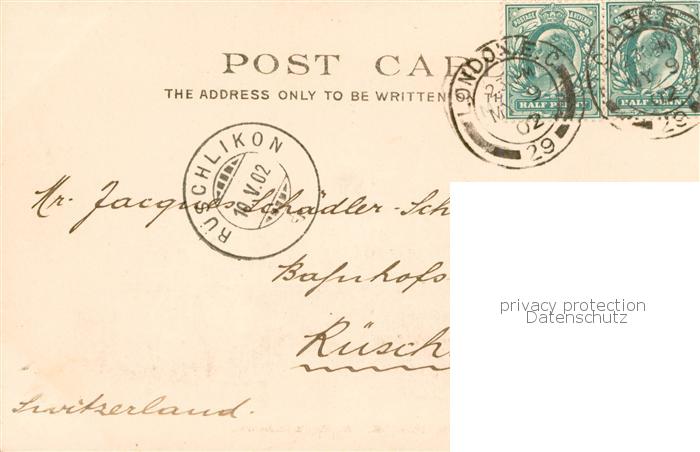 POST CAR
THE ADDRESS ONLY TO BE WRITTEN O
POSTAGE & REVENUE
HALF PENNY
HALF PENNY
LONDON. E.C.
MY 9
02
29
LONDON. E.C.
MY 9
29
RÜSCHLIKON
10.V.02
Mr. Jacques Schädler-Sch
Bahnhofs
Rüsch
Switzerland.
privacy protection
Datenschutz